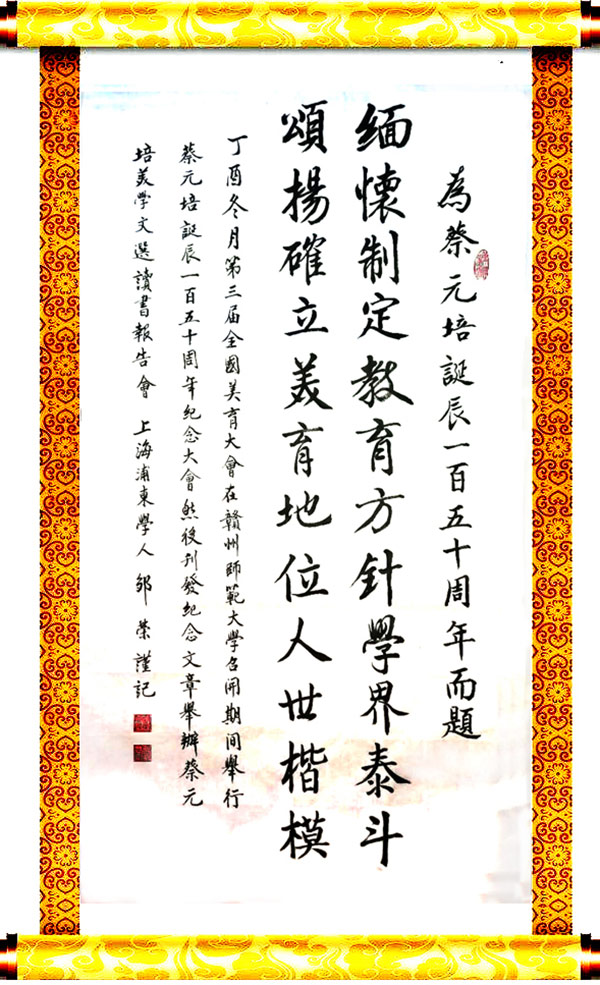 為蔡元培誕辰一百五十周年而題
緬懷制定教育方針學界泰斗
頌揚確立美育地位人世楷模
丁酉冬月第三届全國美育大會在贛州師範大學召開期间舉行
蔡元培誕辰一百五十周年纪念大會然後刊發纪念文章舉辦蔡元
培美學文選讀書報告會 上海浦東學人 邹荣謹記